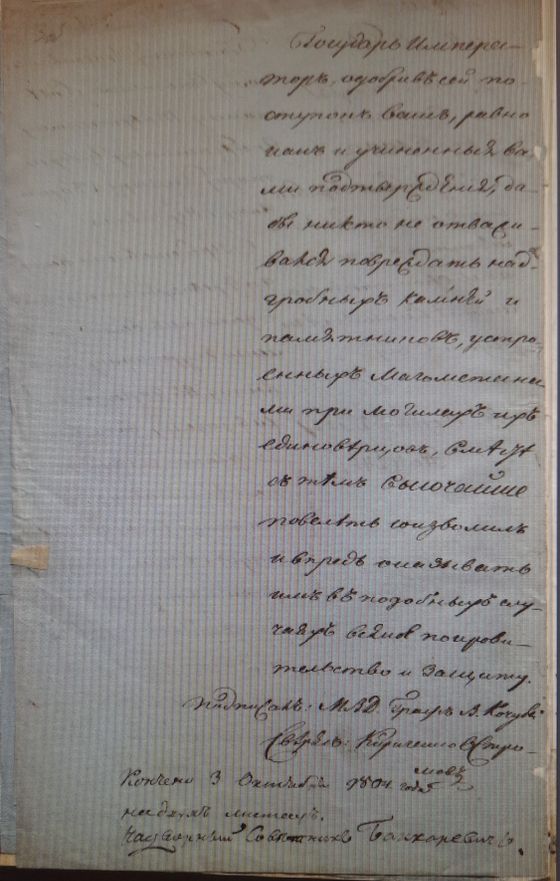 Государь Импера-
торъ, одобривъ сей по-
ступокъ вашъ, равно
какъ и учиненныя ва-
ми подтвержденія, да-
бы никто не отважи-
вался повреждать над-
гробныхъ камней и
памятниковъ, устро-
енныхъ Магометана-
ми при могилахъ ихъ
единовѣрцовъ,
съ тѣмъ Высочайше
повелѣть соизволилъ
и впредь оказывать
имъ въ подобныхъ слу-
чаяхъ всякое покрови-
тельство и защиту.
Подписалъ: М.В.Д. Графъ В. Кочубей
Свѣрялъ:
Кончено 3 Октября 1804 года
на двухъ листахъ.
Надворный Совѣтникъ